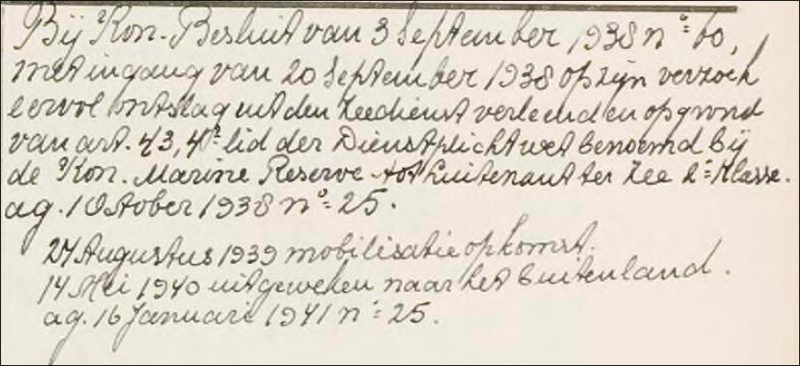 Bij Kon. Besluit van 3 September 1938 no= 60,
met ingang van 20 September 1938 op zijn verzoek
eervol ontslag uit den zeedienst verleend en op grond
van art. 43, 4e lid der Dienstplichtwet benoemd bij
de Kon. Marine Reserve tot Luitenant ter Zee 2e Klasse.
ag. 1 October 1938 no= 25.
24 Augustus 1939 mobilisatie opkomst.
14 Mei 1940 uitgeweken naar het buitenland.
ag. 16 Januari 1941 no= 25.